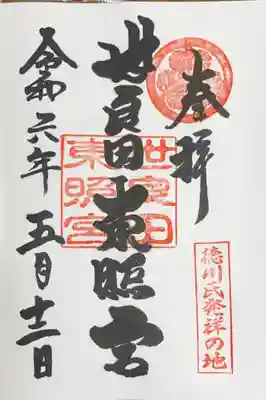 奉拝
徳川氏発祥の地
世良田東照宮
世良田
東照宮
令和六年 五月十二日